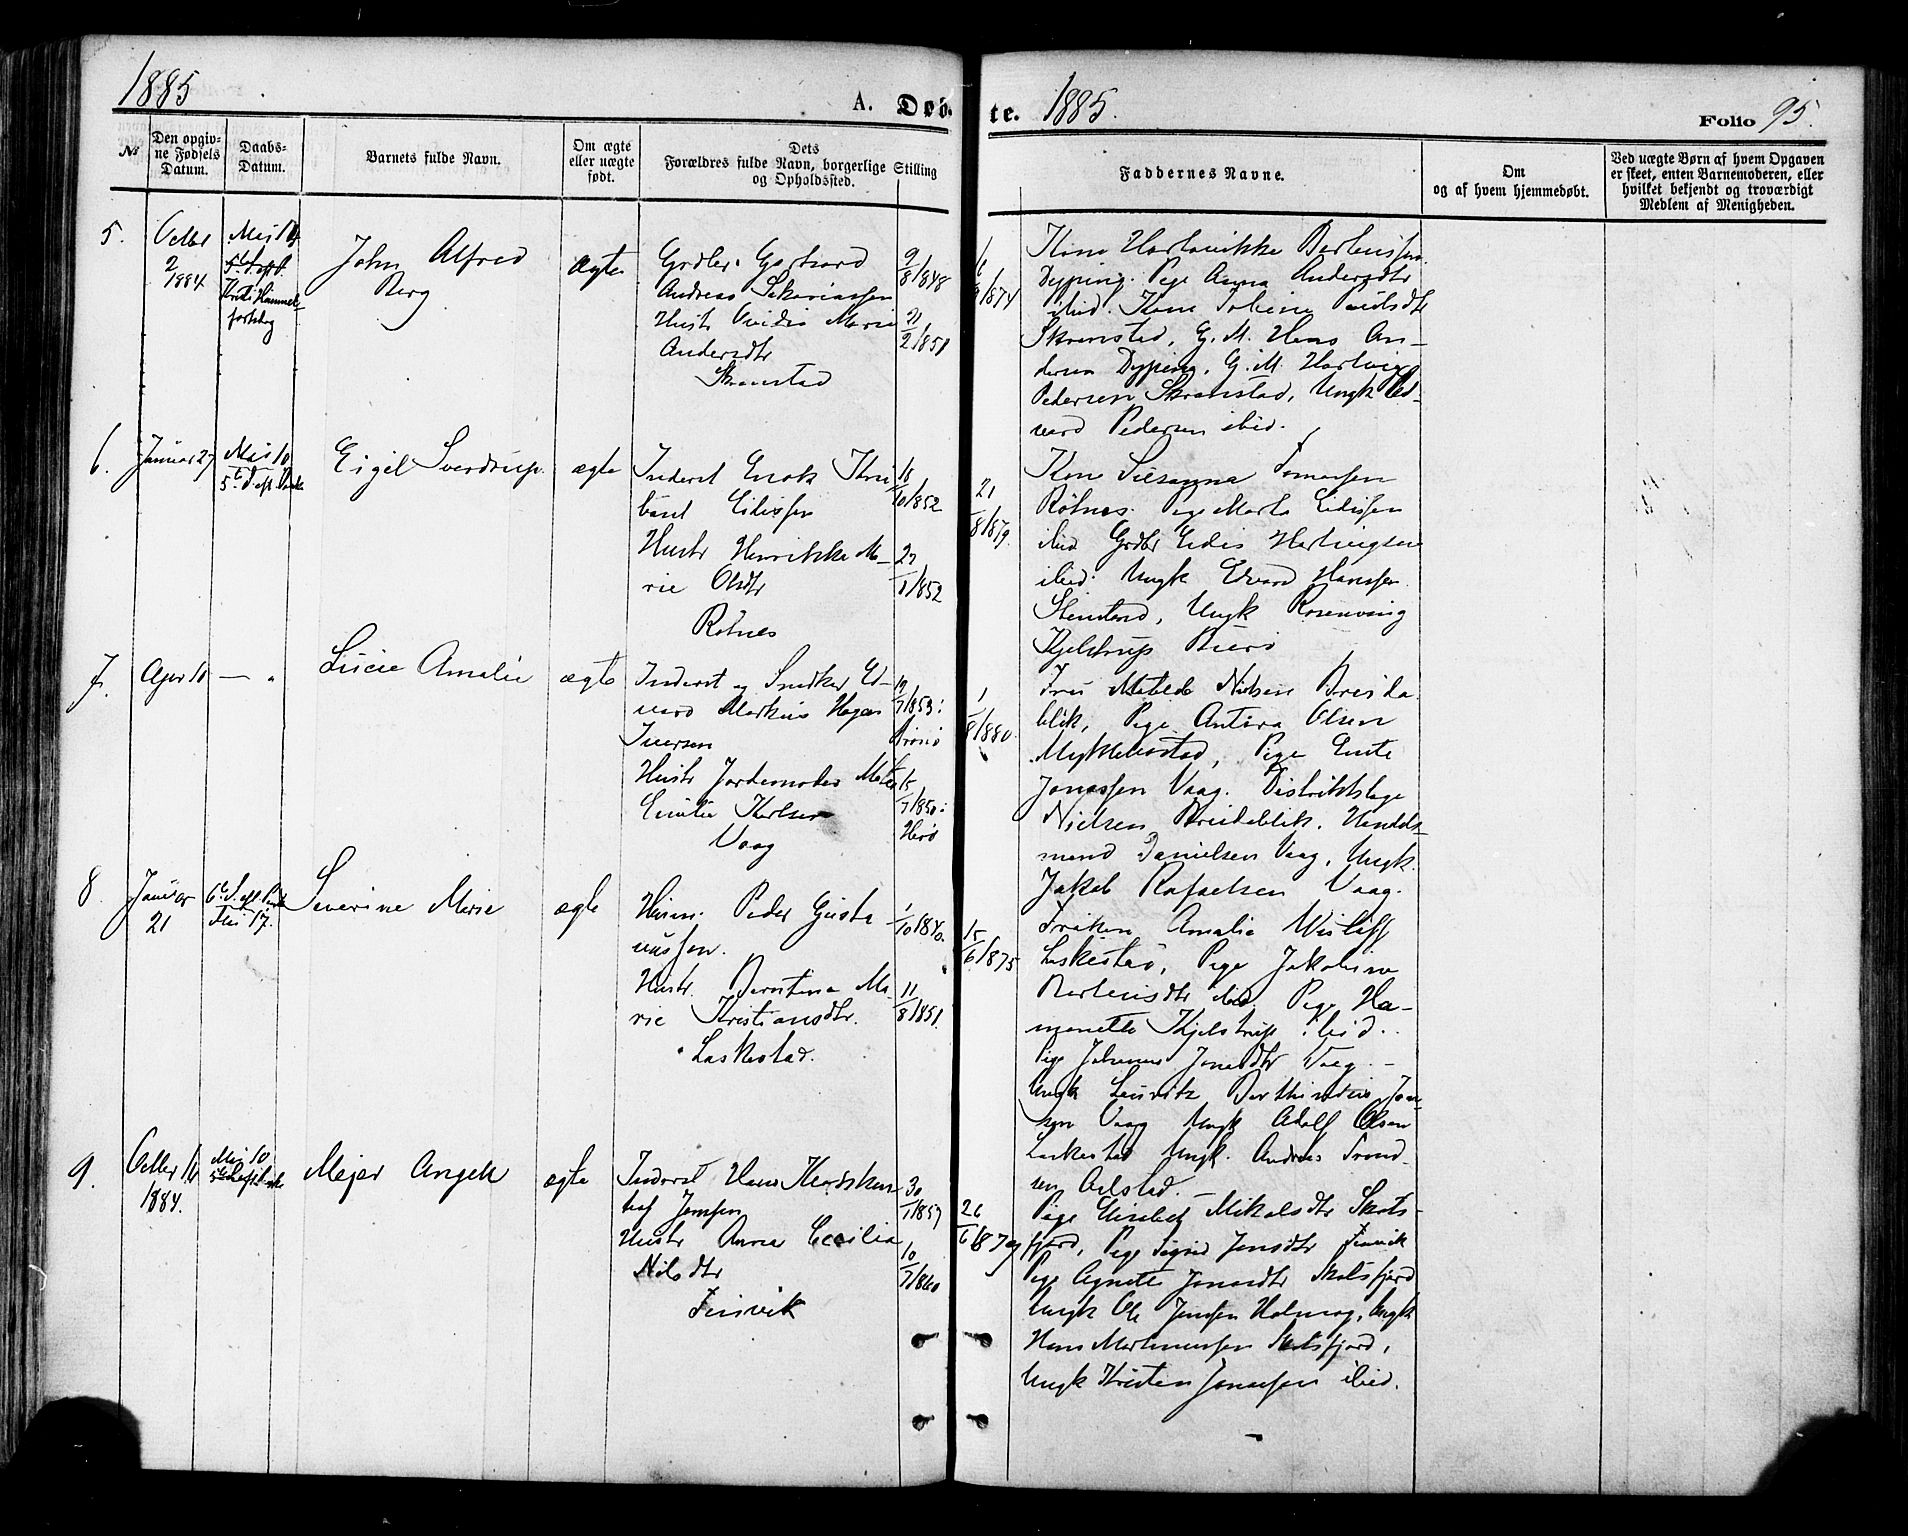 1885
A. Døb-
te. 1885.
Folio 95.
No
Den opgiv-
ne Fødsels
Datum.
Daabs-
Datum.
Barnets fulde Navn.
Om ægte
eller uægte
født.
Dets
Forældres fulde Navn, borgerlige Stilling
og Opholdssted.
Faddernes Navne.
Om
og af hvem hjemmedøbt.
Ved uægte Børn af hvem Opgaven
er skeet, enten Barnemoderen, eller
hvilket bekjendt og troværdigt
Medlem af Menigheden.
5.
Octbr
2
1884
Mai
Kristi Himmel-
fartsdag
John Alfred
Berg
ægte
Grdbr. Gerhard
Andreas Sakariassen
Hustr Ovidia Marie
Andersdtr
Skranstad
9/8/1848
21/2/1851
/1874
Kone Hartvikke Berteussen
Dyping. Pige Anna Andersdtr
ibid. Kone Jokine Paulsdtr
Skranstad, G. M. Hans An-
dersen Dyping, G. M. Hartvig
Pedersen Skranstad, Ungk Ed-
vard Pedersen ibid.
6.
Januar 27
Mai 10
5te S. eft. Paaske
Eigil Sverdrup.
ægte
Inderst Enok Kri
Eidissen
Hustr Henrikke Ma-
rie Olsdtr
Røtnes
18/10/1852
27/1/1852
21/8/1879.
Kone Susanna Tomassen
Røtnes. Pige Marta Eidissen
ibid Grdbr Eidis Hartvigsen
ibid. Ungk Edvard Hanssen
Stenland, Ungk Rosenving
Kjelstrup
7.
April 10
— "
Lucie Amalie
ægte
Inderst og Snedker Ed-
vard Markus Hagen
Iversen
Hustr Jordemoder Mette
Emilie Karlsen
Vaag
/7/1853:
15/7/1850:
Herø
1/8/1880.
Fru Matilde Nielsen Breida
blik, Pige Antora Olsen
Myklebostad, Pige Emte
Jonassen Vaag. Distriktslæge
Nielsen Breidablik. Handels-
mand Danielsen Vaag, Ungk.
Jakob Rafaelsen Vaag.
8.
Januar
21
6te S. eft. Paaske
Mai 17.
Severine Marie
ægte
Husm. Peder Gusta
vussen.
Hustr. Berntine Ma-
rie Kristiansdtr.
Laskestad.
1/10/1840.
11/8/1851.
15/6/1875
Frøken Amalie Wisløff
Laskestad, Pige Jakobine
Berteusdtr ibid. Pige Ha-
manette Kjelstrup ibid.
Pige Johanna Jonasdtr Vaag. —
Ungk Lauritz Berthinius Jon-
sen Vaag Ungk Adolf Olsen
Laskestad Ungk. Andreas Trond-
sen Alstad. —
9.
Octbr 16
1884.
Mai 10
5te S. eft. Paaske
Mejer Angell
ægte
Inderst Hans
Jensen
Hustr Anna Cecilia
Nilsdtr
Finsvik
30/1/1857
10/7/1860
26/6/1879
Pige Elisabet Mikalsdtr Skots-
fjord, Pige Sigrid Jensdtr Finsvik
Pige Agnete Jonasdtr Skotsfjord
Ungk Ole Jensen Holmag, Ungk
Hans Martinussen Skotsfjord,
Ungk Kristen Jonassen ibid.